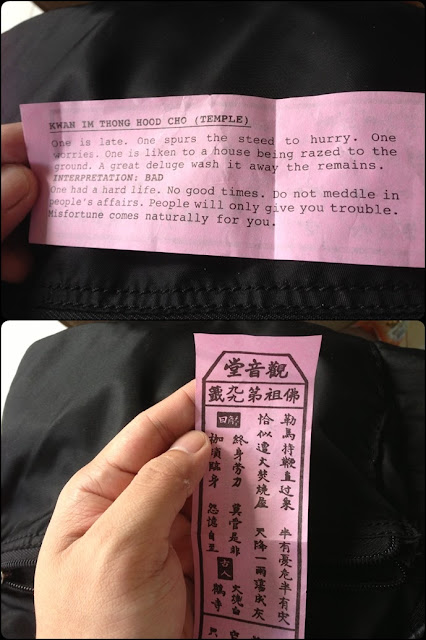 KWAN IM THONG HOOD CHO (TEMPLE)
One is late. One spurs the steed to hurry. One
worries. One is liken to a house being razed to the
ground. A great deluge wash it away the remains.
INTERPRETATION: BAD
One had a hard life. No good times. Do not meddle in
people's affairs. People will only give you trouble.
Misfortune comes naturally for you.
觀音堂
佛祖第九九籤
勒馬持鞭直过來 半有憂危半有灾
恰似遭火焚燒屋 天降一雨蕩成灰
解曰
終身勞力 莫管是非
枷鎖臨身
古人